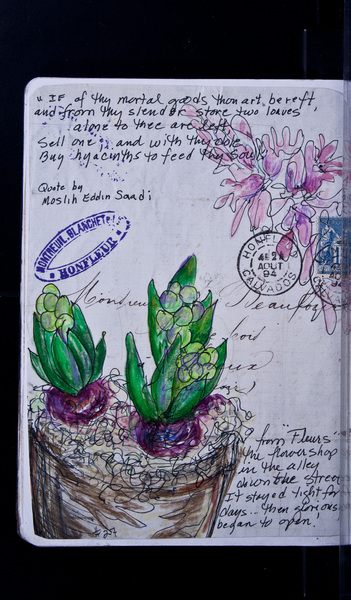 " IF of thy mortal goods thou art bereft,
and from thy slender store two loaves
alone to thee are left
Sell one, and with thy dole
Buy hyacinths to feed thy Soul
Quote by
Moslih Eddin Saadi
MONTREUIL. BLANCHET
HONFLEUR
HONFLEUR
4E 2
AOUT
94
CALVADOS
Monsieur Beaufo
from "Fleurs"
the flower shop
in the alley
down the street
It stayed tight for
days... then glorious
began to open!